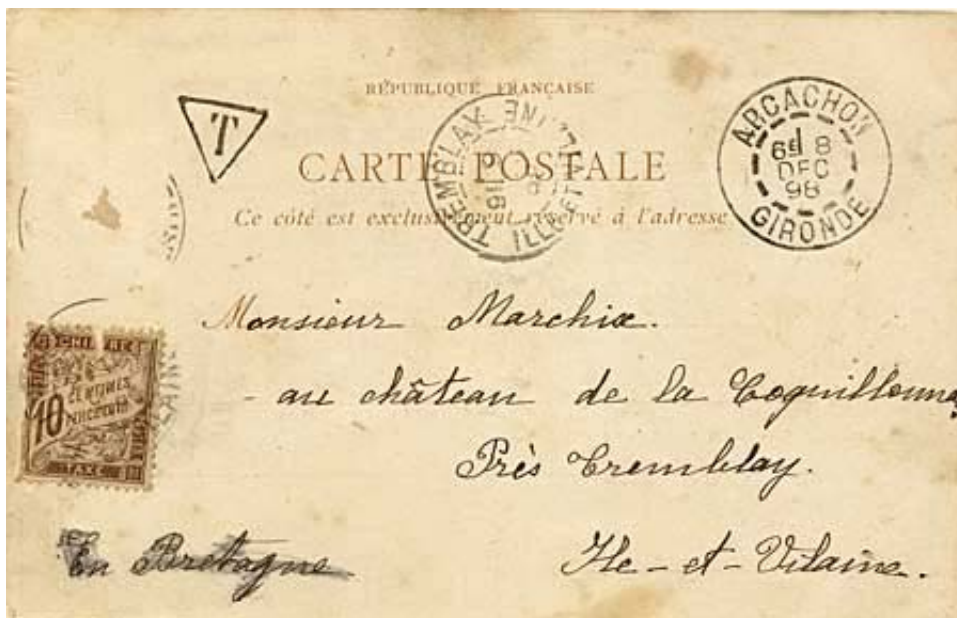 RÉPUBLIQUE FRANÇAISE
T
CARTE POSTALE
Ce côté est exclusivement réservé à l'adresse
TREMBLAY ILLE ET VILAINE
ARCACHON
6E 8
DEC
98
GIRONDE
Monsieur Marchix.
au château de la
Près Tremblay.
Ile-et-Vilaine.
En Bretagne
CHIFFRES
10
CENTIMES
A PERCEVOIR
TAXE